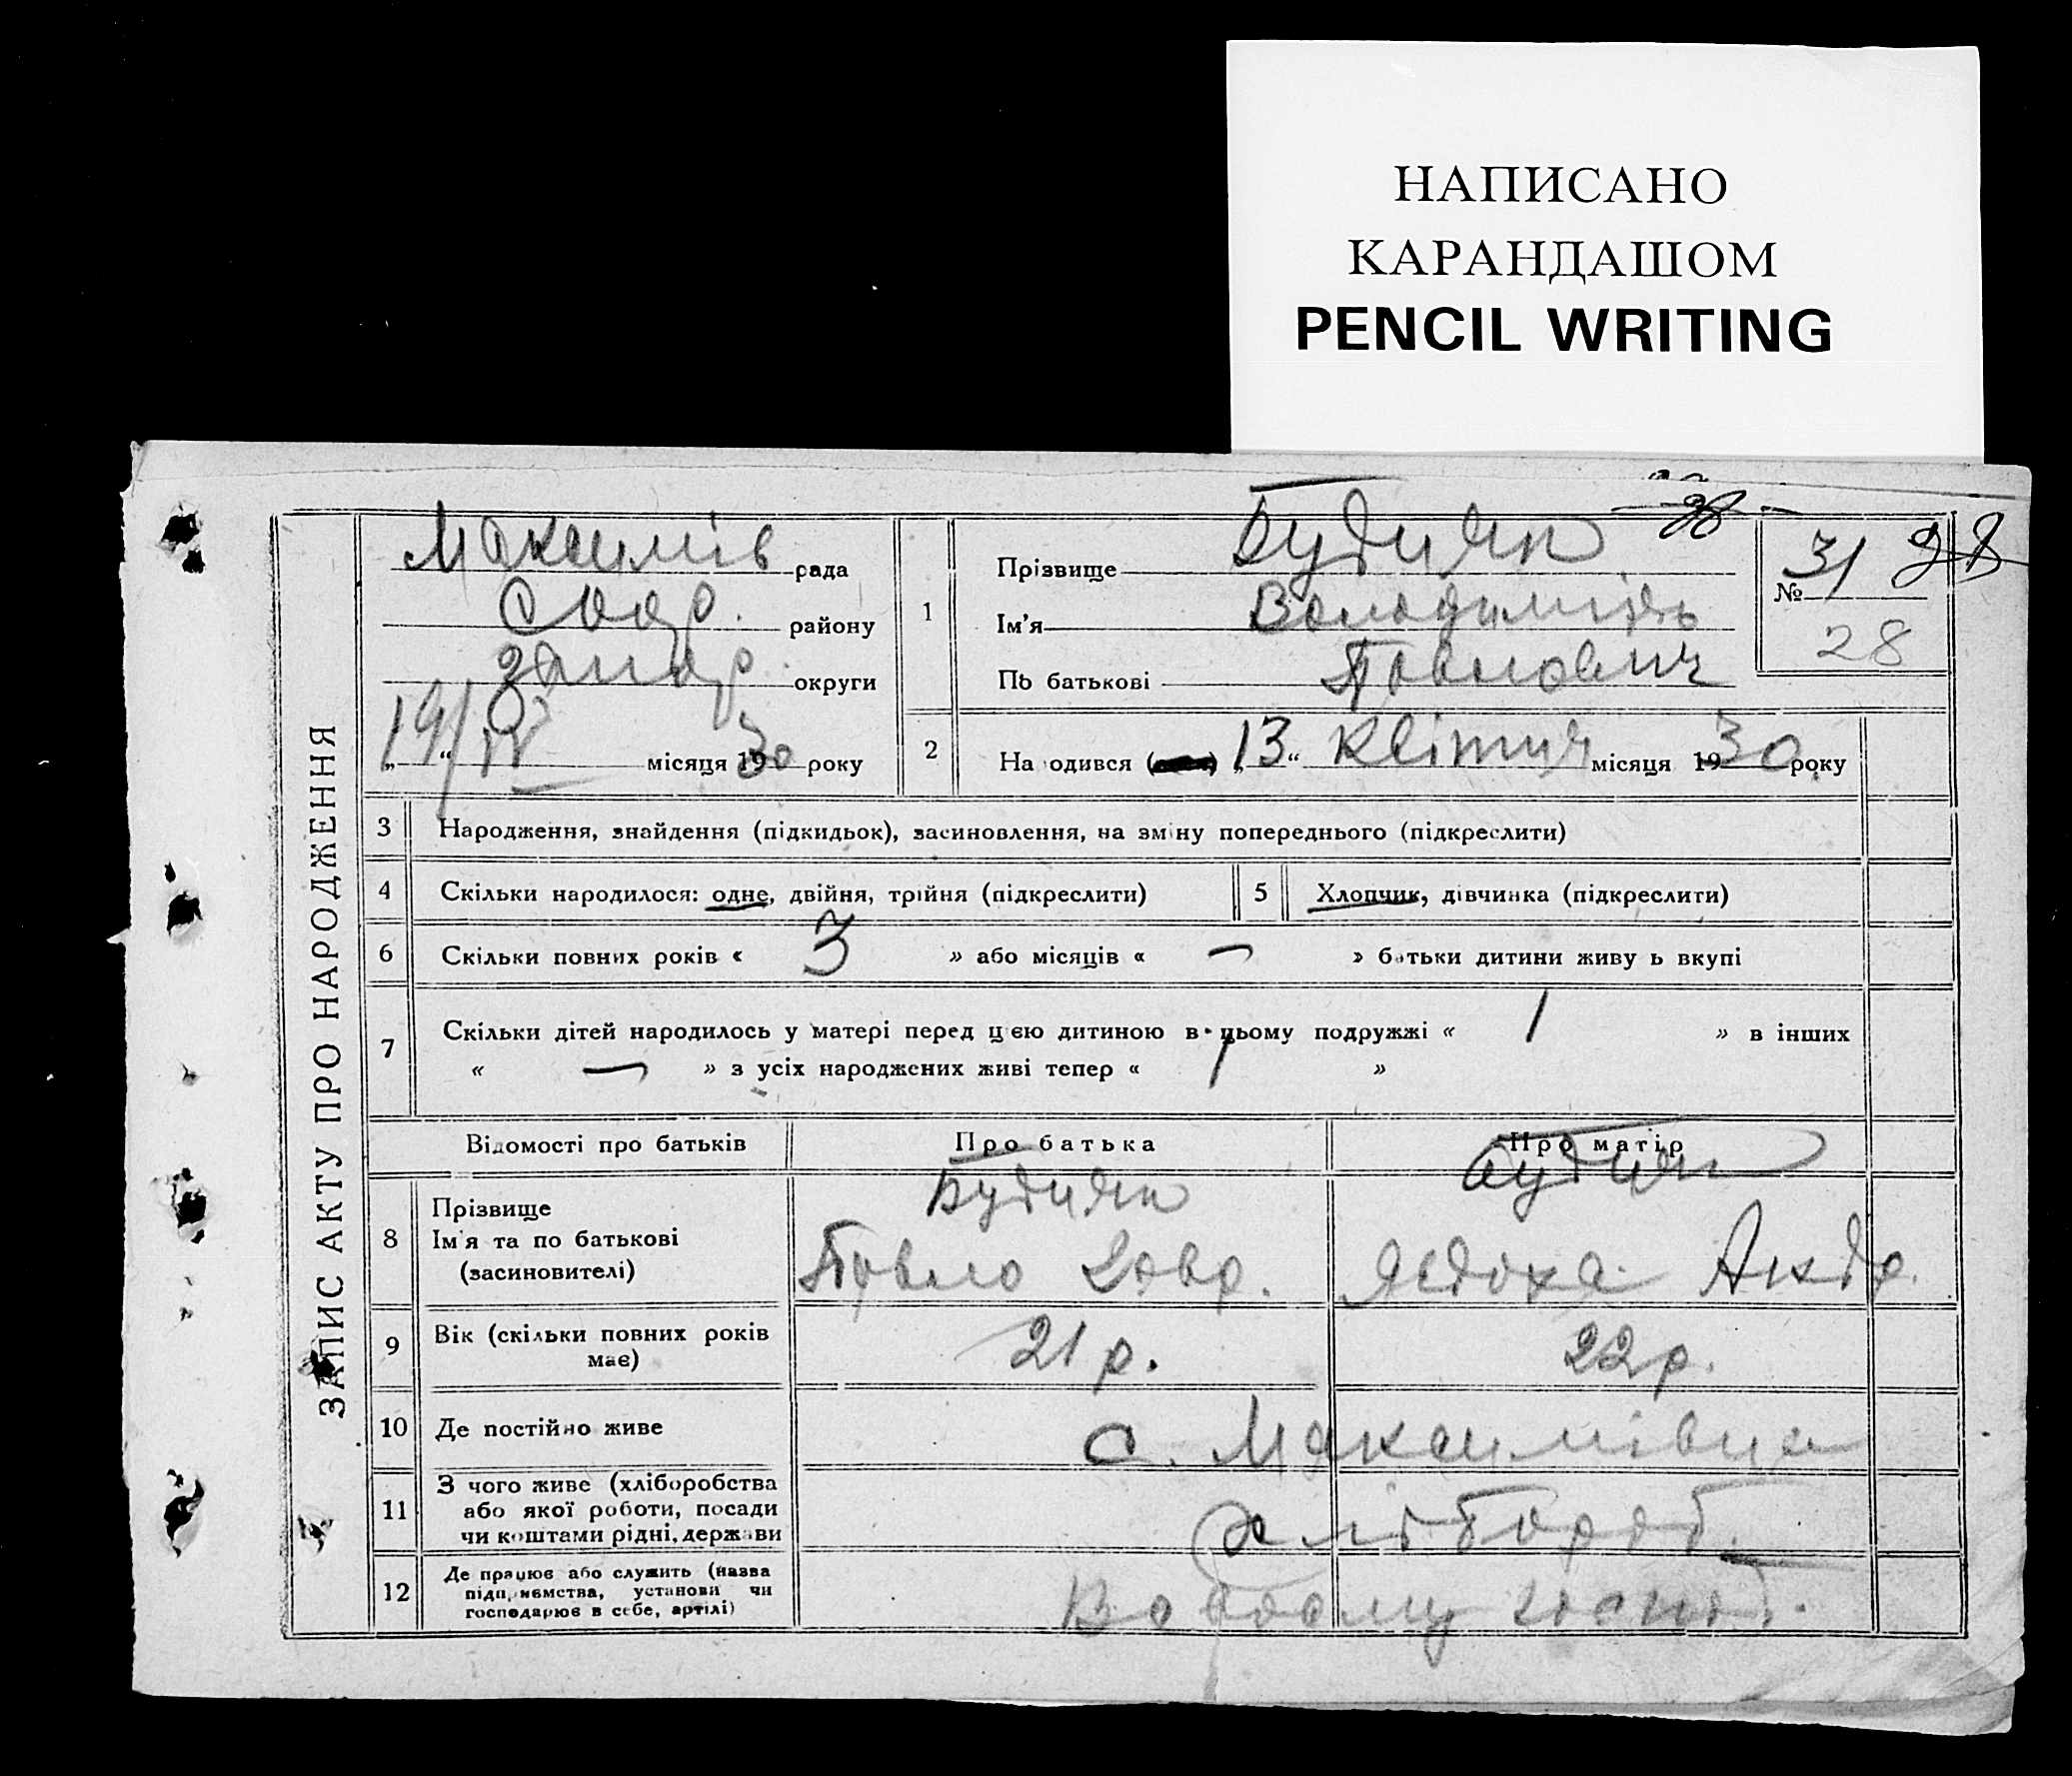 НАПИСАНО
КАРАНДАШОМ
PENCIL WRITING
ЗАПИС АКТУ ПРО НАРОДЖЕННЯ
Максимів рада
району
Запор. округи
„19/“ IV місяця 1930 року
1
Прізвище Будиян
Ім'я Володимирь
По батькові Павлович
№ 31 28
28
2
На одився „13“ Квітня місяця 1930 року
3 Народження, знайдення (підкидьок), засиновлення, на зміну попереднього (підкреслити)
4 Скільки народилося: одне, двійня, трійня (підкреслити) 5 Хлопчик, дівчинка (підкреслити)
6 Скільки повних років « 3 » або місяців « — » батьки дитини живу ь вкупі
7 Скільки дітей народилось у матері перед цією дитиною в цьому подружжі « 1 » в інших
« — » з усіх народжених живі тепер « 1 »
Відомості про батьків Про батька Про матір
8 Прізвище
Ім'я та по батькові
(засиновителі)
Будиян
Павло
Будиян
Явдоха Андр.
9 Вік (скільки повних років
має)
21 р. 22 р.
10 Де постійно живе с. Максимівца
11 З чого живе (хліборобства
або якої роботи, посади
чи коштами рідні, держави
хлібороб.
12 Де працює або служить (назва
підприємства, установи чи
господарює в себе, артілі)